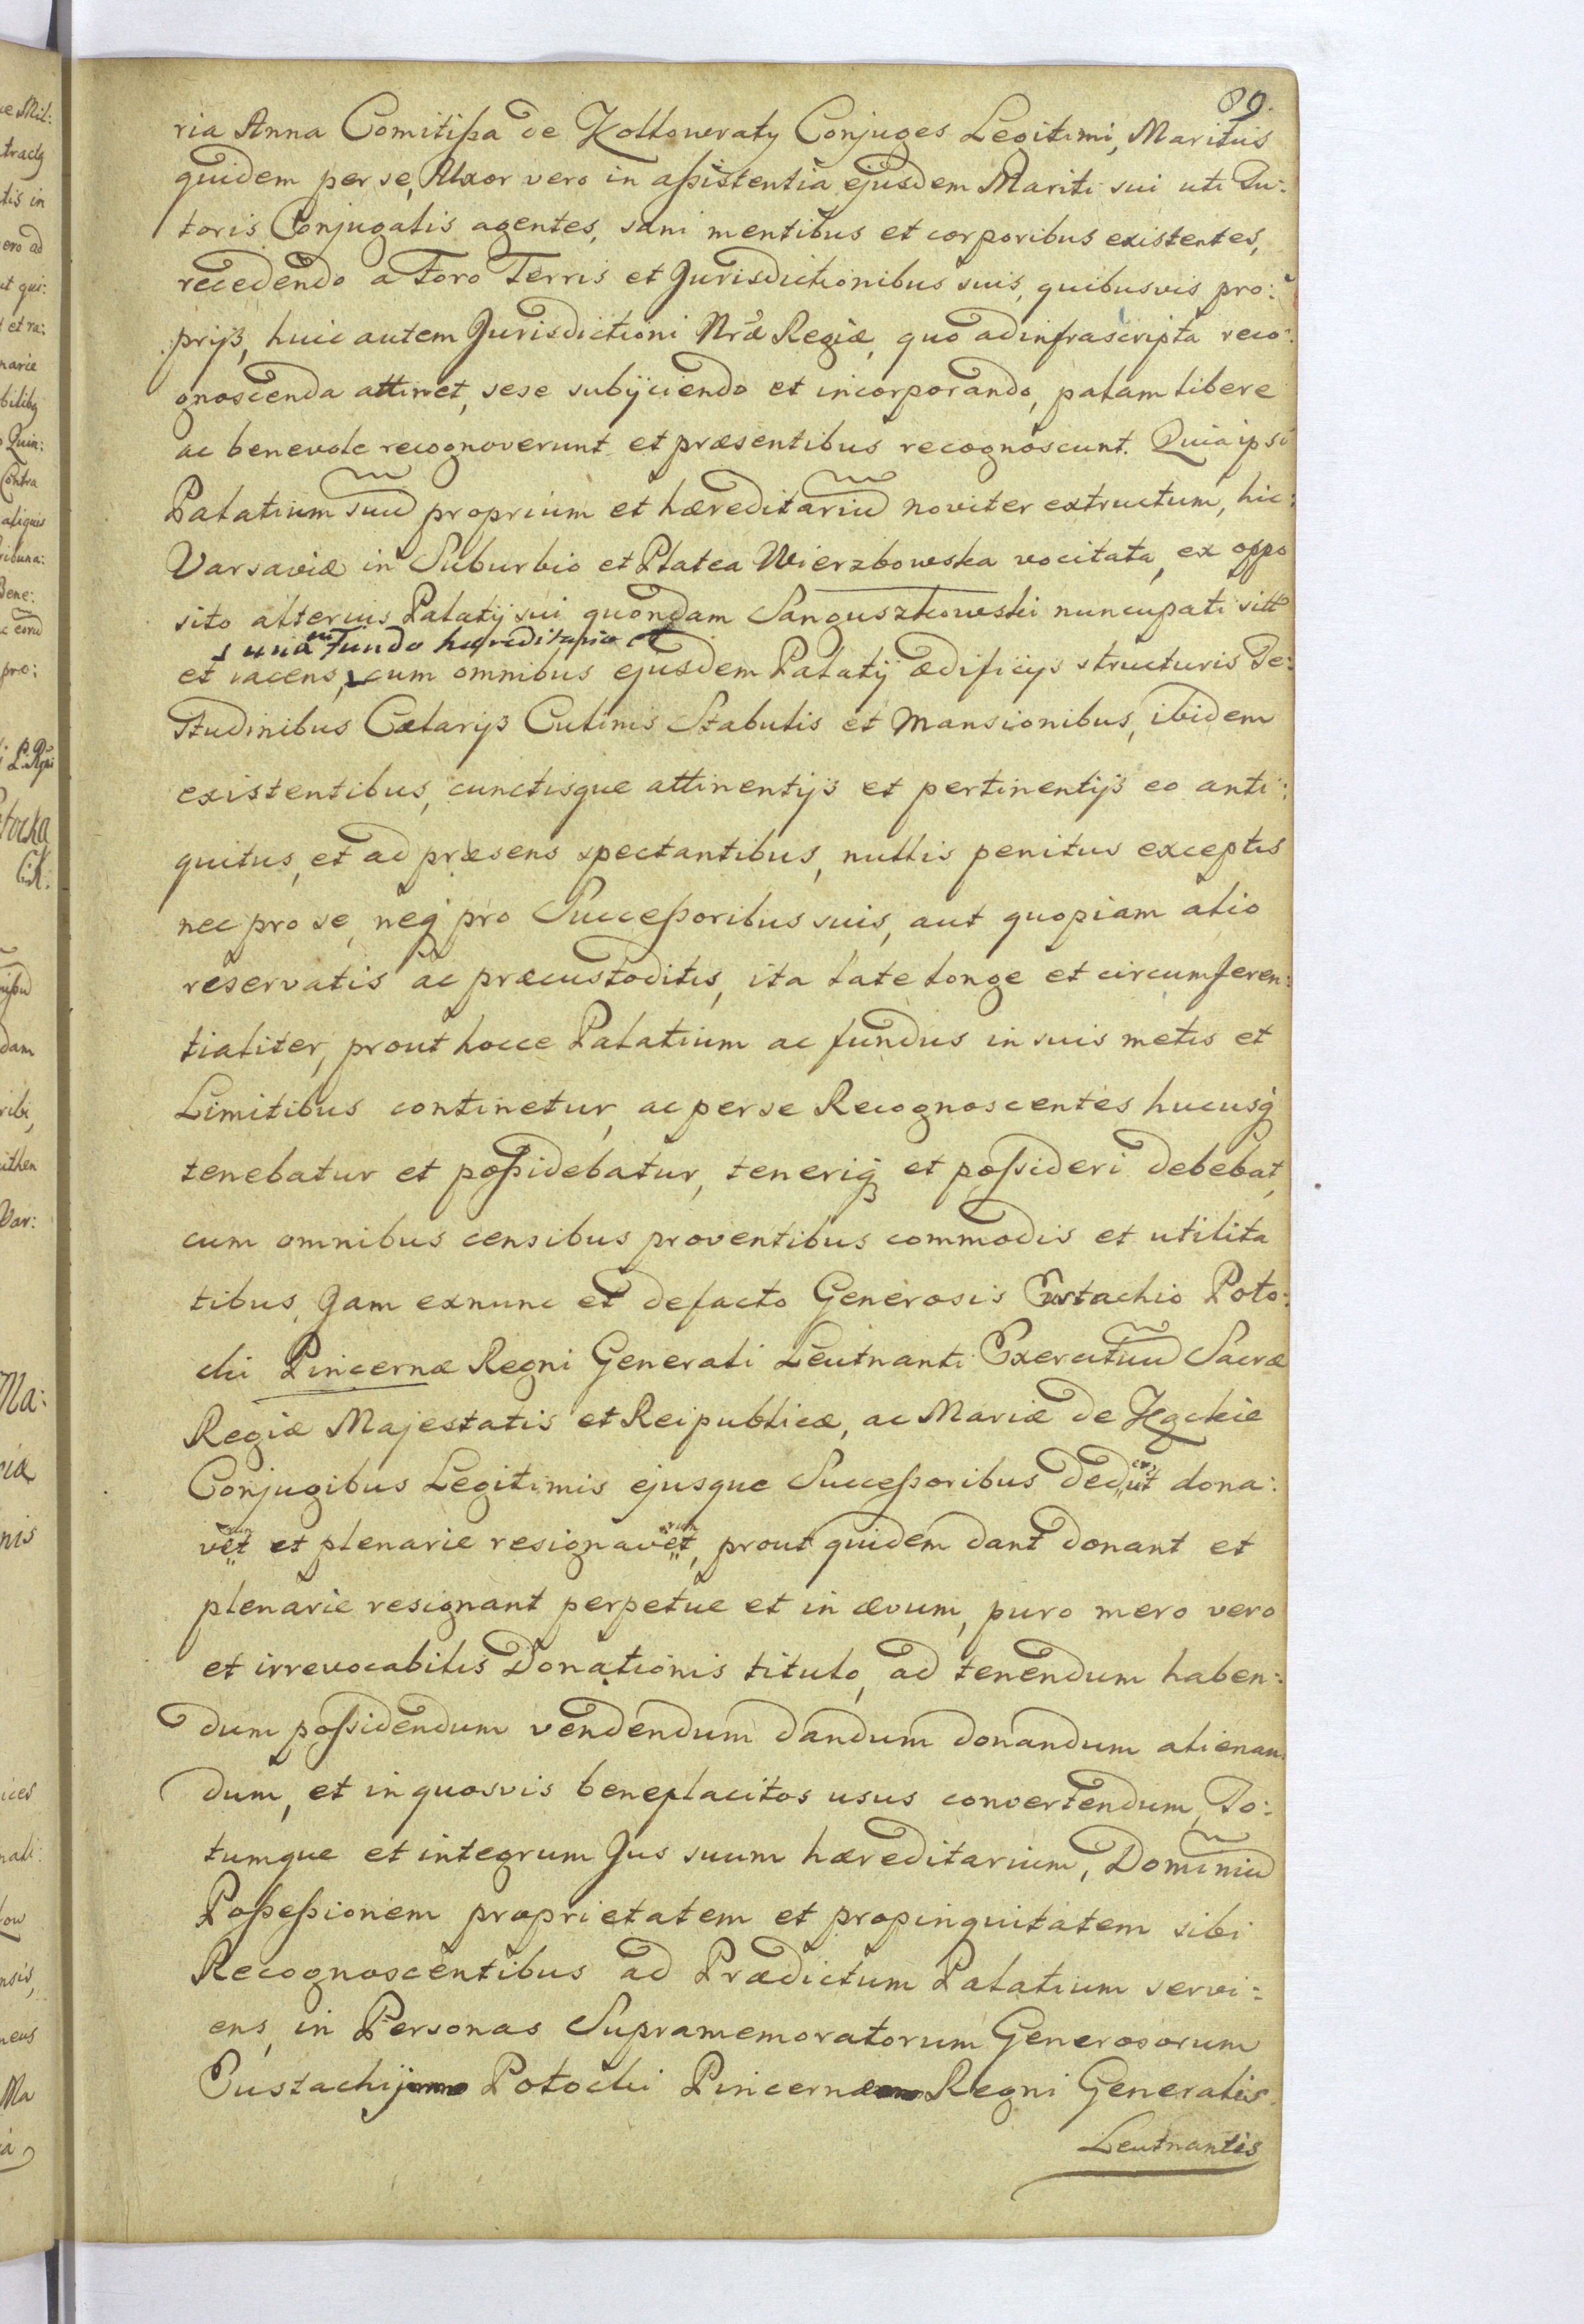 89.
ria Anna Comitißa de Kollowraty Conjuges Legitimi, Maritus
quidem per se, Uxor vero in aßistentia ejusdem Mariti sui uti Tu:
toris Conjugalis agentes, sani mentibus et corporibus existentes,
recedendo a Foro Terris et Jurisdictionibus suis, quibusvis pro:
prijs, huic autem Jurisdictioni Nræ Regiæ, quo ad infrascripta reco:
gnoscenda attinet, sese subijciendo et incorporando, palam libere
ac benevole recognoverunt et præsentibus recognoscunt. Quia ipsi
Palatium suũ proprium et hæreditariũ noviter extructum, hic
Varsaviæ in Suburbio et Platea Wierzbowska vocitata, ex oppo
sito alterius Palatij sui quondam Sanguszkowski nuncupati sitũ
una cum Fundo hæreditario et
et iacens, cum omnibus ejusdem Palatij ædificijs structuris Te:
studinibus Cælarijs Culinis Stabulis et Mansionibus, ibidem
existentibus, cunctisque attinentijs et pertinentijs eo anti:
quitus, et ad præsens spectantibus, nullis penitus exceptis
nec pro se, neq pro Succeßoribus suis, aut quopiam alio
reservatis ac præcustoditis, ita late longe et circumferen:
tialiter, prout hocce Palatium ac fundus in suis metis et
Limitibus continetur, ac per se Recognoscentes hucusq
tenebatur et poßidebatur, teneriq et poßideri debebat,
cum omnibus censibus proventibus commodis et utilita
tibus, Jam exnunc et defacto Generosis Eustachio Poto:
cki Pincernæ Regni Generali Leutnanti Exercituũ Sacræ
Regiæ Majestatis et Reipublicæ, ac Mariæ de Kąckie
Conjugibus Legitimis ejusque Succeßoribus dedut dona:
vet et plenarie resignavet, prout quidem dant donant et
plenarie resignant perpetue et in ævum, puro mero vero
et irrevocabilis Donationis titulo, ad tenendum haben:
dum poßidendum vendendum dandum donandum alienan
dum, et in quosvis beneplacitos usus convertendum, To:
tumque et integrum Jus suum hæreditarium, Dominiũ
Poßeßionem proprietatem et propinquitatem sibi
Recognoscentibus ad Prædictum Palatium servi:
ens, in Personas Supramemoratorum Generosorum
Eustachij Potocki Pincernæ Regni Generalis
Leutnantis